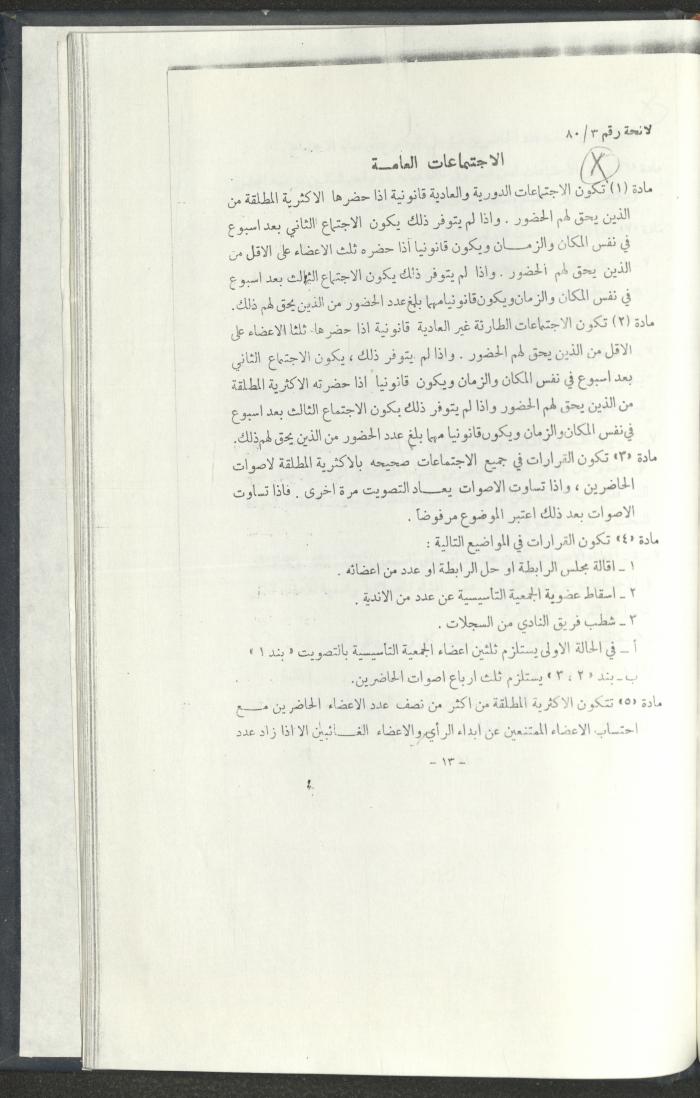 لائحة رقم ٣/ ٨٠
الاجتماعات العامــة
مادة (١) تكون الاجتماعات الدورية والعادية قانونية اذا حضرها الاكثرية المطلقة من
الذين يحق لهم الحضور . واذا لم يتوفر ذلك يكون الاجتماع الثاني بعد اسبوع
في نفس المكان والزمــان ويكون قانونيا اذا حضره ثلث الاعضاء على الاقل من
الذين يحق لهم الحضور . واذا لم يتوفر ذلك يكون الاجتماع الثالث بعد اسبوع
في نفس المكان والزمان ويكون قانونيا مهما بلغ عدد الحضور من الذين يحق لهم ذلك.
مادة (٢) تكون الاجتماعات الطارئة غير العادية قانونية اذا حضرها ثلثا الاعضاء على
الاقل من الذين يحق لهم الحضور . واذا لم يتوفر ذلك ، يكون الاجتماع الثاني
بعد اسبوع في نفس المكان والزمان ويكون قانونيا اذا حضرته الاكثرية المطلقة
من الذين يحق لهم الحضور واذا لم يتوفر ذلك يكون الاجتماع الثالث بعد اسبوع
في نفس المكان والزمان ويكون قانونيا مهما بلغ عدد الحضور من الذين يحق لهم ذلك.
مادة «٣» تكون القرارات في جميع الاجتماعات صحيحه بالاكثرية المطلقة لاصوات
الحاضرين ، واذا تساوت الاصوات يعــاد التصويت مرة اخرى . فاذا تساوت
الاصوات بعد ذلك اعتبر الموضوع مرفوضاً .
مادة «٤» تكون القرارات في المواضيع التالية :
١ ـ اقالة مجلس الرابطة او حل الرابطة او عدد من اعضائه .
٢ ـ اسقاط عضوية الجمعية التأسيسية عن عدد من الاندية .
٣ ـ شطب فريق النادي من السجلات .
أ ـ في الحالة الاولى يستلزم ثلثين اعضاء الجمعية التأسيسية بالتصويت « بند ١ »
ب ـ بند « ٢ ، ٣ » يستلزم ثلث ارباع اصوات الحاضرين.
مادة «٥» تتكون الاكثرية المطلقة من اكثر من نصف عدد الاعضاء الحاضرين مــع
احتساب الاعضاء الممتنعين عن ابداء الرأي والاعضاء الغــائبين الا اذا زاد عدد
- ١٣ -